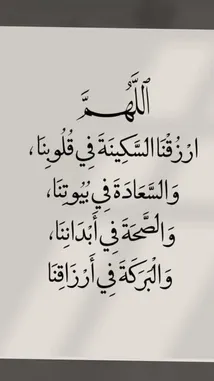 اللَّهُمَّ
ارْزُقْنَا السَّكِينَةَ فِي قُلُوبِنَا،
وَالسَّعَادَةَ فِي بُيُوتِنَا،
وَالصَّحَةَ فِي أَبْدَانِنَا،
وَالْبَرَكَةَ فِي أَرْزَاقِنَا